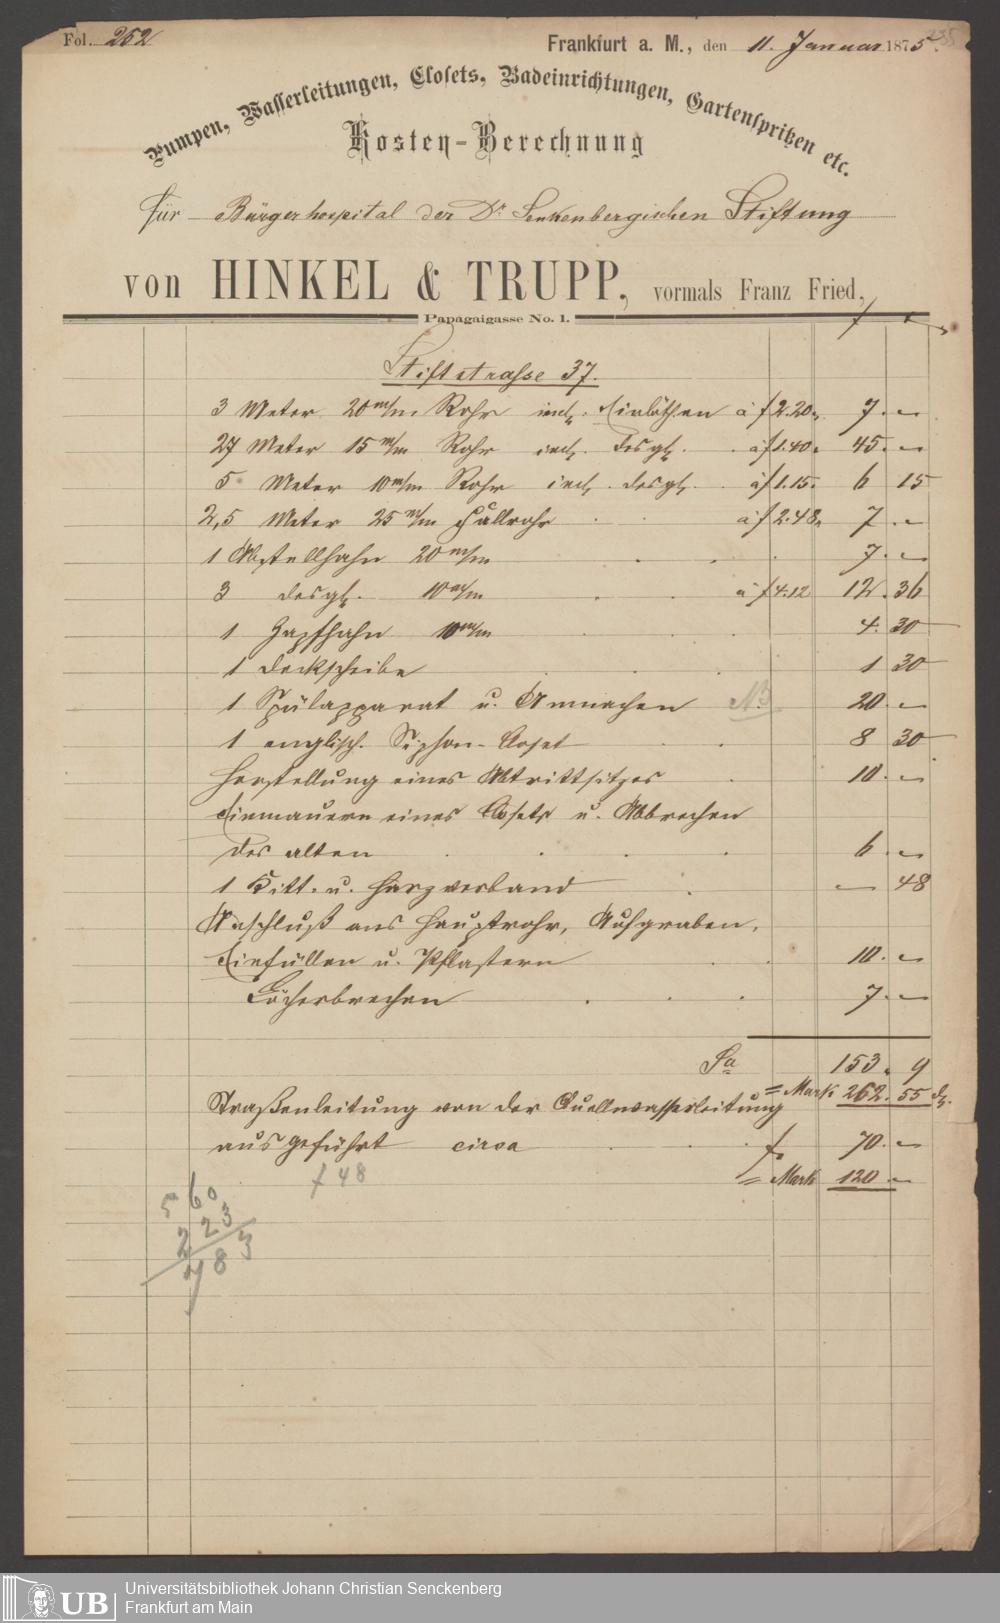 Fol. 252
235
Frankfurt a. M., den 11. Januar 1875.
Pumpen, Wasserleitungen, Closets, Badeinrichtungen, Gartenspritzen etc.
Kosten-Berechnung
für Bürgerhospital der Dr. Senkenbergischen Stiftung
von HINKEL & TRUPP, vormals Franz Fried,
Papagaigasse No. 1.
f x
Stiftstrasse 37.
3 Meter 20 m/m Rohr incl. Einlöthen à f 2.20. 7. –
27 Meter 15 m/m Rohr incl. desgl. à f 1.40. 45. –
5 Meter 10 m/m Rohr incl. desgl. à f 1.15. 6 15
2,5 Meter 25 m/m Fallrohr à f 2.48. 7. –
1 Abstellhahn 20 m/m 7. –
3 desgl. 10 m/m à f 4.12 12. 36
1 Zapfhahn 10 m/m 4. 30
1 Deckscheibe 1 30
1 Spülapparat u. Anmachen NB 20. –
1 englisch. Siphon-Closet 8 30
Herstellung eines Abtrittsitzes 10. –
Einmauern eines Closets u. Abbrechen
des alten 6. –
1 Kitt- u. Harzverband – 48
Anschluß ans Hauptrohr, Aufgraben,
Einfüllen u. Pflastern 10. –
Löcherbrechen 7. –
Sa 153. 9
= Mark 262. 55 d.
Straßenleitung von der Quellwasserleitung
ausgeführt circa f. 70. –
= Mark 120 –
f 48
5 60
2 23
7 83
UB
Universitätsbibliothek Johann Christian Senckenberg
Frankfurt am Main